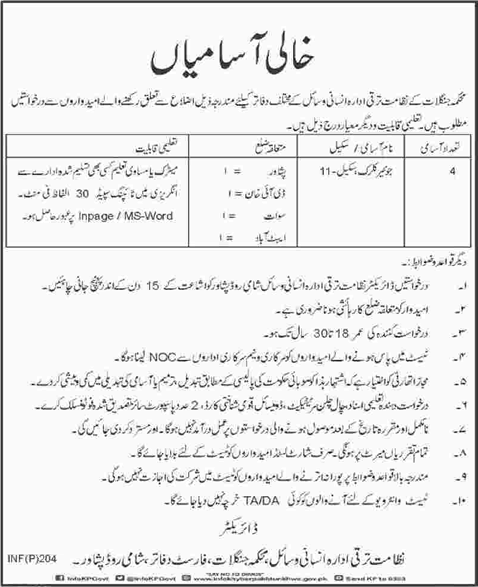 خالی آسامیاں
محکمہ جنگلات کے نظامت ترقی ادارہ انسانی وسائل کے مختلف دفاتر کیلئے مندرجہ ذیل اضلاع سے تعلق رکھنے والے امیدواروں سے درخواستیں
مطلوب ہیں۔ تعلیمی قابلیت و دیگر معیار درج ذیل ہیں۔
تعداد آسامی نام آسامی / سکیل متعلقہ ضلع تعلیمی قابلیت
4 جونیئر کلرک سکیل-11 پشاور = ۱ میٹرک یا مساوی تعلیم کسی بھی تسلیم شدہ ادارے سے
ڈی آئی خان = ۱ انگریزی میں ٹائپنگ سپیڈ 30 الفاظ فی منٹ۔
سوات = ۱ Inpage / MS-Word پر عبور حاصل ہو۔
ایبٹ آباد = ۱
دیگر قواعد و ضوابط:۔
۱۔ درخواستیں ڈائریکٹر نظامت ترقی ادارہ انسانی وسائل شامی روڈ پشاور کو اشاعت کے 15 دن کے اندر پہنچ جانی چاہئیں۔
۲۔ امیدوار کو متعلقہ ضلع کا رہائشی ہونا ضروری ہے۔
۳۔ درخواست کنندہ کی عمر 18 تا 30 سال تک ہو۔
۴۔ ٹیسٹ میں پاس ہونے والے امیدواروں کو سرکاری و نیم سرکاری اداروں سے NOC لینا ہوگا۔
۵۔ مجاز اتھارٹی کو اختیار ہے کہ اشتہار ہذا کو صوبائی حکومت کی پالیسی کے مطابق تبدیل، ترمیم یا آسامی کی تبدیلی میں کمی بیشی کر دے۔
۶۔ درخواست دہندہ تعلیمی اسناد، چال چلن سرٹیفکیٹ، ڈومیسائل، قومی شناختی کارڈ، 2 عدد پاسپورٹ سائز تصدیق شدہ فوٹو منسلک کرے۔
۷۔ نامکمل اور مقررہ تاریخ کے بعد موصول ہونے والی درخواستوں پر عمل درآمد نہیں ہوگا۔ اور مسترد کر دی جائیں گی۔
۸۔ تمام تقرریاں میرٹ پر ہونگی۔ صرف شارٹ لسٹڈ امیدواروں کو ٹیسٹ کے لئے بلایا جائے گا۔
۹۔ مندرجہ بالا قواعد و ضوابط پر پورا نہ اترنے والے امیدواروں کو ٹیسٹ میں شرکت کی اجازت نہیں ہوگی۔
۱۰۔ ٹیسٹ و انٹرویو کے لئے آنے والوں کو کوئی TA/DA خرچہ نہیں دیا جائے گا۔
ڈائریکٹر
نظامت ترقی ادارہ انسانی وسائل، محکمہ جنگلات، فارسٹ دفاتر، شامی روڈ پشاور۔
INF(P)204
"SAY NO TO DRUGS"
InfoKPGovt @InfoKPGovt InfoKPGovt www.infokhyberpakhtunkhwa.gov.pk Send KP to 8333